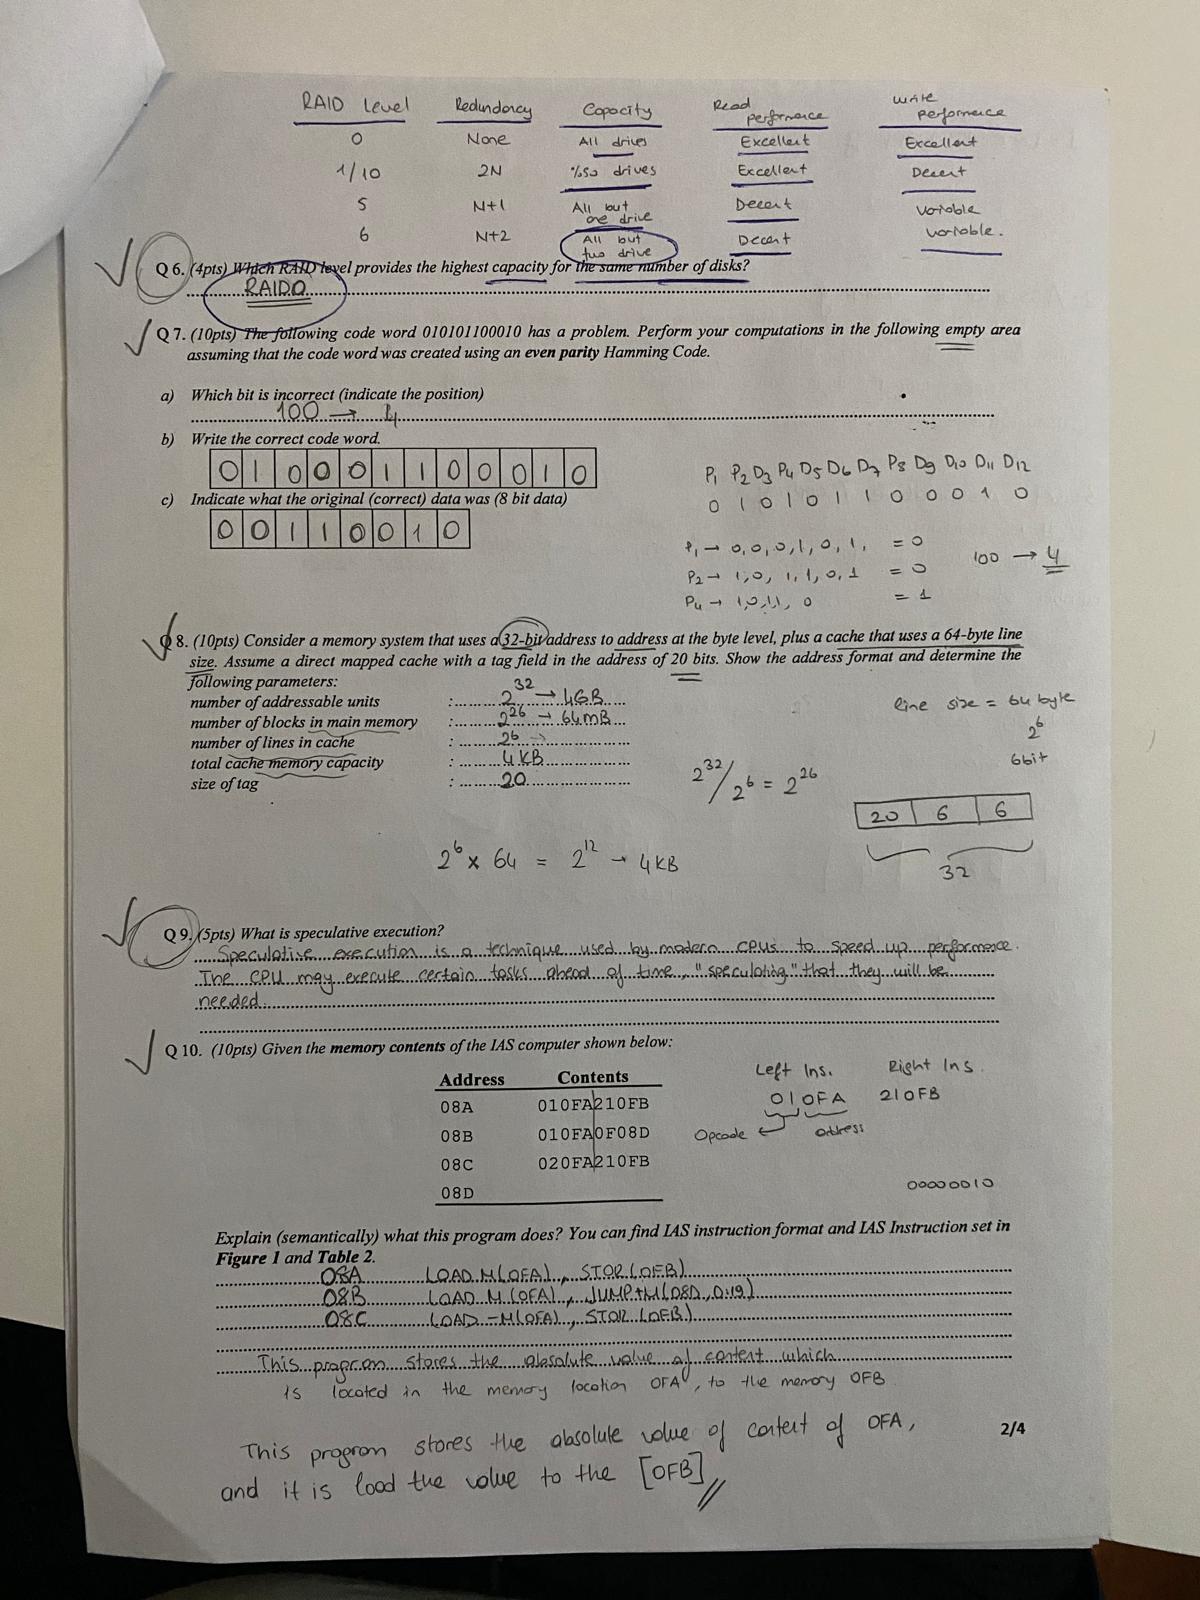 RAID Level Redundancy Capacity Read performance Write performance
0 None All drives Excellent Excellent
1/10 2N %50 drives Excellent Decent
5 N+1 All but one drive Decent Variable
6 N+2 All but two drive Decent Variable.
Q 6. (4pts) Which RAID level provides the highest capacity for the same number of disks?
RAID0
Q 7. (10pts) The following code word 010101100010 has a problem. Perform your computations in the following empty area
assuming that the code word was created using an even parity Hamming Code.
a) Which bit is incorrect (indicate the position)
100 → 4
b) Write the correct code word.
0 1 0 0 0 1 1 0 0 0 1 0
P1 P2 D3 P4 D5 D6 D7 P8 D9 D10 D11 D12
0 1 0 1 0 1 1 0 0 0 1 0
c) Indicate what the original (correct) data was (8 bit data)
0 0 1 1 0 0 1 0
P1 → 0,0,0,1,0,1, = 0
P2 → 1,0,1,1,0,1 = 0
100 → 4
P4 → 1,0,1,1,0 = 1
Q 8. (10pts) Consider a memory system that uses a 32-bit address to address at the byte level, plus a cache that uses a 64-byte line
size. Assume a direct mapped cache with a tag field in the address of 20 bits. Show the address format and determine the
following parameters:
number of addressable units : 2^32 → 4GB
number of blocks in main memory : 2^26 → 64mB
number of lines in cache : 2^6 →
total cache memory capacity : 4KB
size of tag : 20
line size = 64 byte
2^6
6bit
2^32/2^6 = 2^26
20 6 6
32
2^6 x 64 = 2^12 → 4KB
Q 9. (5pts) What is speculative execution?
Speculative execution is a technique used by modern CPUs to speed up performance.
The CPU may execute certain tasks ahead of time, "speculating" that they will be
needed.
Q 10. (10pts) Given the memory contents of the IAS computer shown below:
Address Contents
08A 010FA210FB
08B 010FA0F08D
08C 020FA210FB
08D
Left Ins. Right Ins.
010FA 210FB
Opcode address
00000010
Explain (semantically) what this program does? You can find IAS instruction format and IAS Instruction set in
Figure 1 and Table 2.
08A LOAD M(OFA), STOR (OFB)
08B LOAD M(OFA), JUMP+M(08D, 0:19)
08C LOAD -M(OFA), STOR (OFB)
This program stores the absolute value of content which
is located in the memory location OFA, to the memory OFB
This program stores the absolute value of content of OFA,
and it is load the value to the [OFB]
2/4